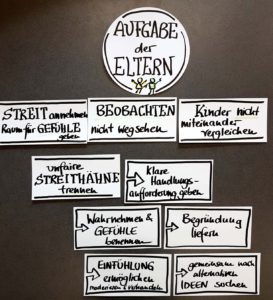 AUFGABE
der
ELTERN
STREIT annehmen
Raum für GEFÜHLE
geben
BEOBACHTEN
nicht wegsehen
Kinder nicht
miteinander
vergleichen
unfaire
STREITHÄHNE
trennen
→ klare
Handlungs-
aufforderung geben
→ Wahrnehmen &
GEFÜHLE
benennen
→ Begründung
liefern
→ EINFÜHLUNG
ermöglichen
moderieren & verhandeln
→ gemeinsam nach
alternativen
IDEEN suchen